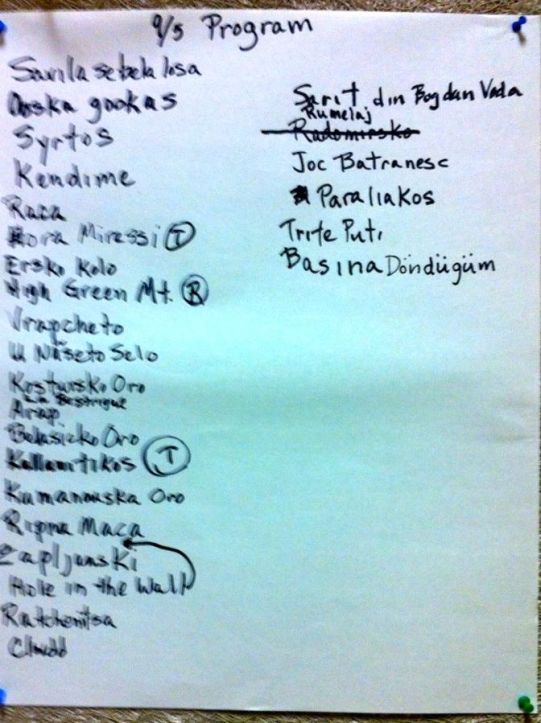 9/5 Program
Savila se bela losa
Doska gookas
Syrtos
Kendime
Raca
Hora Miressi T
Ersko Kolo
High Green Mt. R
Vrapcheto
U Našeto Selo
Kostursko Oro
La Bestrigue
Arap
Belasicko Oro
T
Kumanovska Oro
Ripna Maca
Zapljanski
Hole in the Wall
Ratchenitsa
Sarit din Bogdan Voda
Rumelaj
Radomirsko
Joc Batranesc
Paraliakos
Trite Puti
Basina Döndügüm